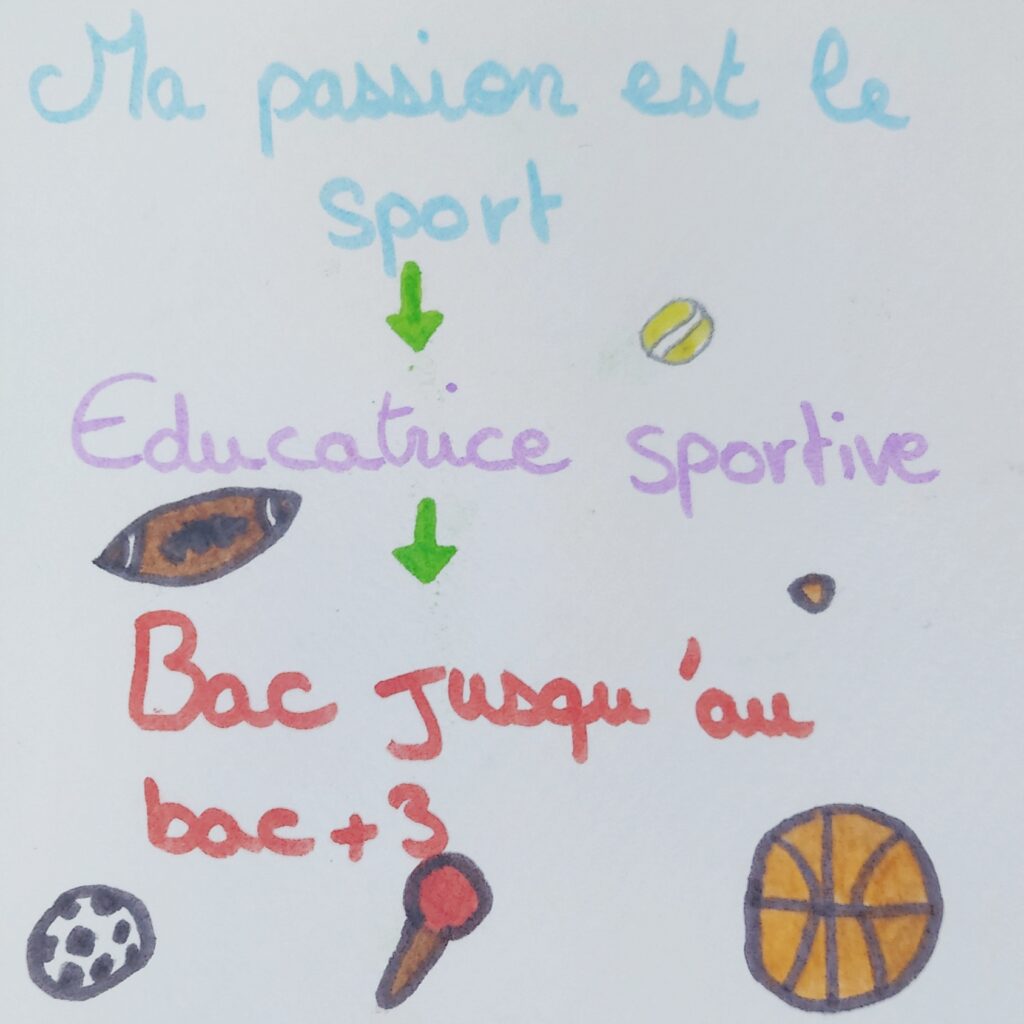 Ma passion est le
sport
Educatrice sportive
Bac jusqu'au
bac+3